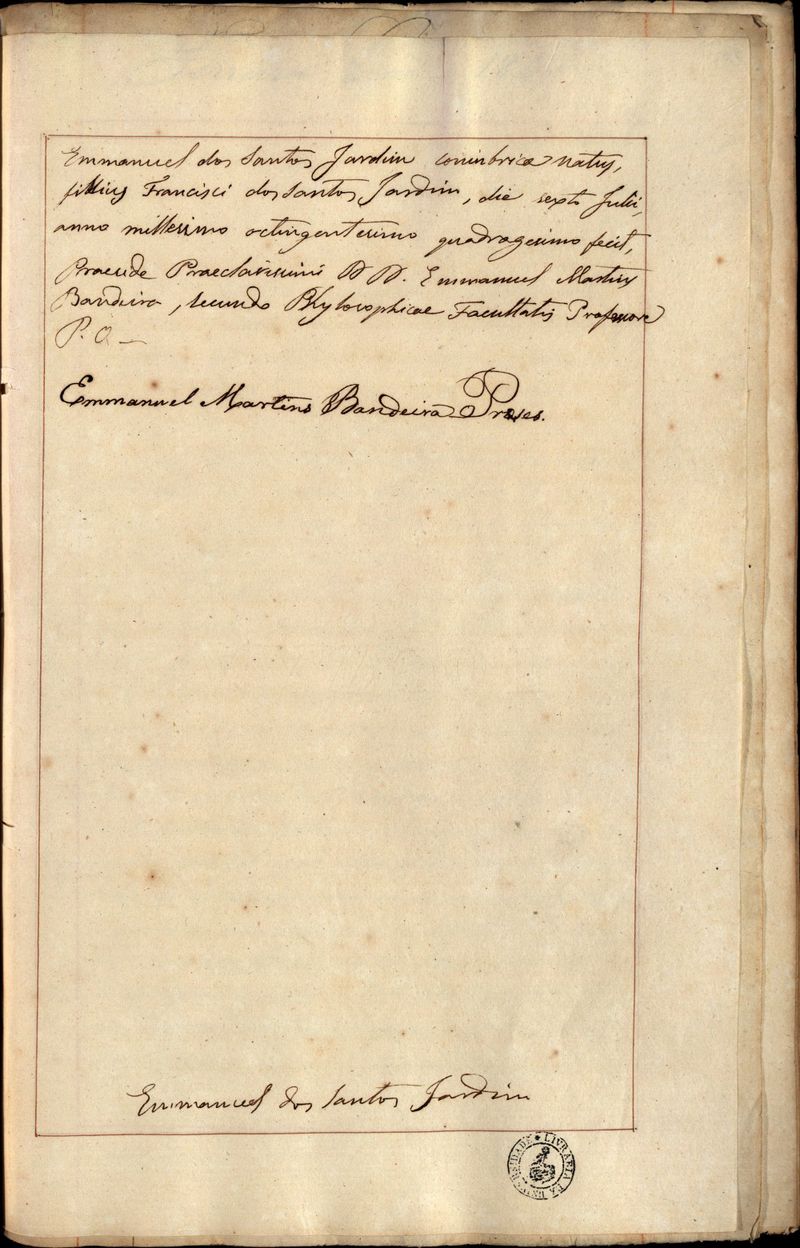 Emmanuel dos Santos Jardim conimbricæ natus,
filius Francisci dos Santos Jardim, die sexto Julii,
anno millesimo octingentesimo quadragesimo fecit,
Praeside Praeclarissimi D D. Emmanuel Martins
Bandeira, secundo Phylosophicae Facultatis Professore
P. O
Emmanuel Martins Bandeira Præses.
Emmanuel dos Santos Jardim
LIVRARIA DA UNIVERSIDADE